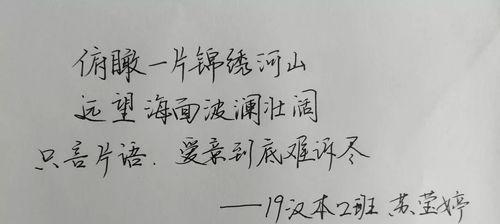 俯瞰一片锦绣河山
远望海面波澜壮阔
只言片语.爱意到底难诉尽
——19汉本2班 苏莹婷